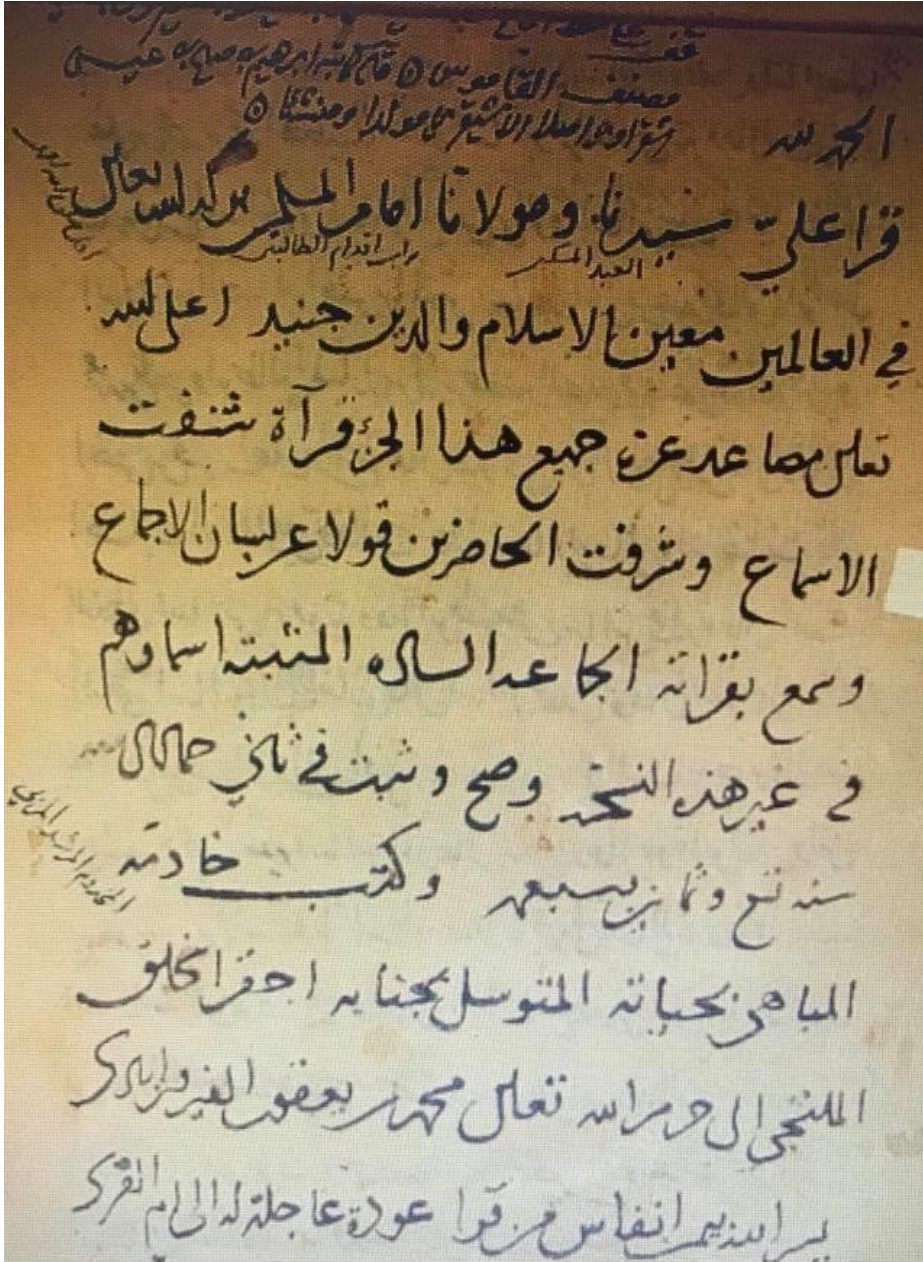 مصنف القاموس ۞ قاله كاتبه ابرهيم بن صالح بن عيسى
اصلا الاشيقري مولدا ومنشئا ۞
الحمد لله
قرا عليّ سيدنا ومولانا امام المسلمين بركة الله تعالى
العبد المسكين تراب اقدام الطالبين
في العالمين معين الاسلام والدين جنيد اعلى الله
تعالى مصاعد عزه جميع هذا الجزء قرآة شنفت
الاسماع وشرفت الحاضرين قولا عن لسان الاجماع
وسمع بقراته الجماعه الساده المثبته اسماوهم
في غير هذه النسخه وصح وثبت في ثاني جمادى
سنه تسع وثمانين وسبعمه وكتب خادمه
المباهي بحياته المتوسل بجنابه احقر الخلق
الملتجي الى حرم الله تعالى محمد بن يعقوب الفيروزابادي
يسر الله بيمن انفاس من قرا عودة عاجلة له الى ام القرى